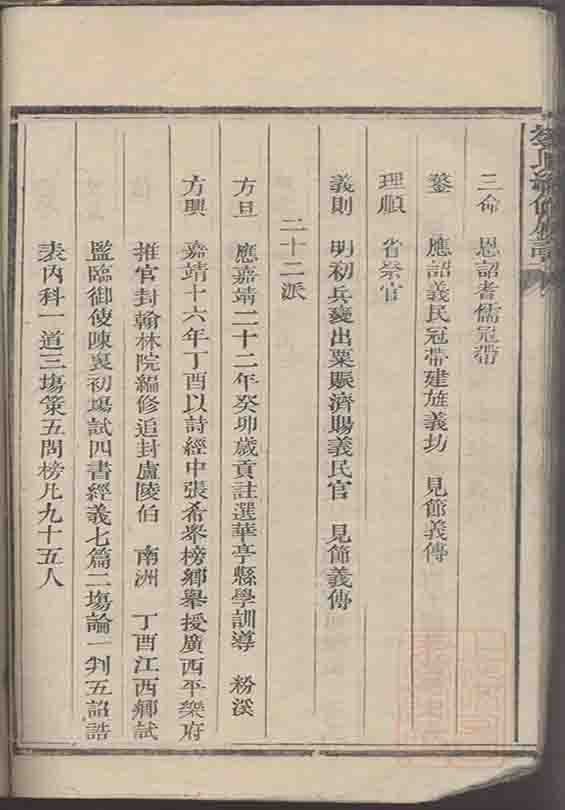 三命　恩詔耆儒冠帶
鏊　應詔義民冠帶建旌義坊　見節義傳
理順　省祭官
義則　明初兵變出粟賑濟賜義民官　見節義傳
二十二派
方旦　應嘉靖二十二年癸卯歲貢註選華亭縣學訓導　粉溪
方興　嘉靖十六年丁酉以詩經中張希舉榜鄉舉授廣西平樂府
推官封翰林院編修追封盧陵伯　南洲　丁酉江西鄉試
監臨御使陳褎初場試四書經義七篇二塲論一判五詔誥
表內科一道三塲策五問榜凡九十五人